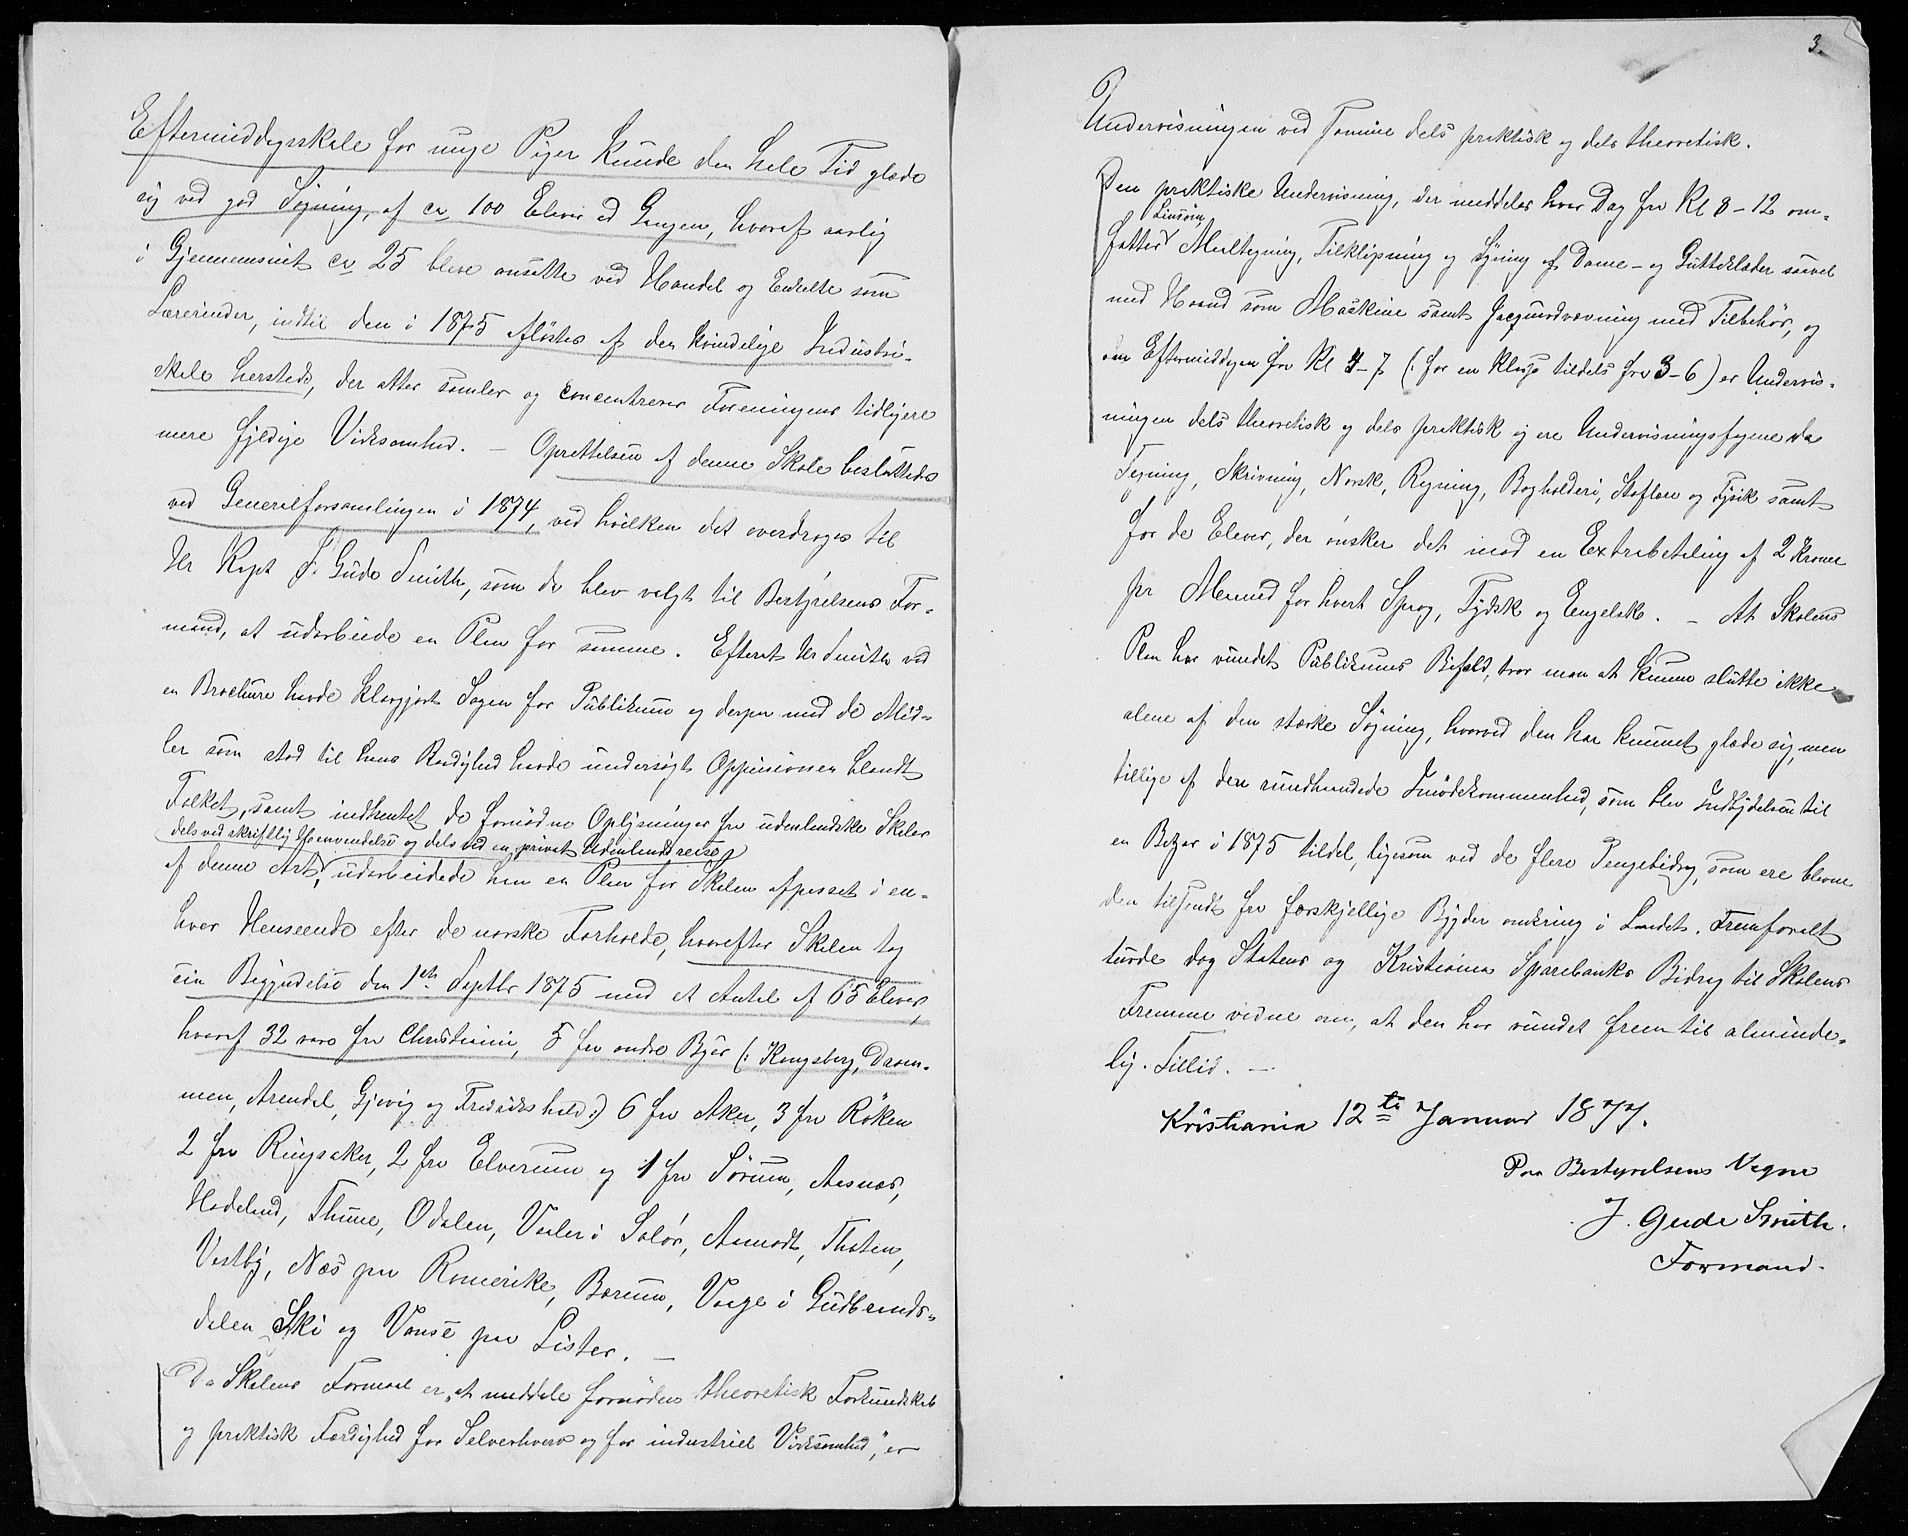 Eftermiddagsskole for unge Piger kunde den hele Tid glæde
sig ved god Søgning, af ca 100 Elever ad Gangen, hvoraf aarlig
i Gjennemsnit ca 25 bleve ansatte ved Handel og Enkelte som
Lærerinder, indtil den i 1875 afløstes af den kvindelige Industri-
skole hersteds, der atter samler og concentrerer Foreningens tidligere
mere fyldige Virksomhed. – Oprettelsen af denne Skole besluttedes
ved Generalforsamlingen i 1874, ved hvilken det overdroges til
Hr Kapt J. Gude Smith, som da blev valgt til Bestyrelsens For-
mand, at udarbeide en Plan for samme. Efterat Hr Smith ved
en Brochure havde klargjort Sagen for Publikum og derpaa med de Mid-
ler som stod til hans Raadighed havde undersøgt Oppinionen blandt
Folket, samt indhentet de fornødne Oplysninger fra udenlandske Skoler
dels ved skriftlig Henvendelse og dels ved en privat Udenlandsreise
af denne Art, udarbeidede han en Plan for Skolen afpasset i en-
hver Henseende efter de norske Forholde, hvorefter Skolen tog
sin Begyndelse den 1ste Septbr 1875 med et Antal af 65 Elever,
hvoraf 32 vare fra Christiania, 5 fra andre Byer (: Kongsberg, Dram-
men, Arendal, Gjøvig og Fredrikshald :) 6 fra Aker, 3 fra Røken
2 fra Ringsaker, 2 fra Elverum og 1 fra Sørum, Aasnæs,
Hadeland, Thune, Odalen, Vaaler i Solør, Aamodt, Thoten,
Vestby, Næs paa Romerike, Bærum, Vaage i Gudbrands-
dalen Ski og Vanse paa Lister. –
Da Skolens Formaal er „at meddele fornøden theoretisk Forkundskab
og praktisk Færdighed for Selverhverv og for industriel Virksomhed", er
3.
Undervisningen ved samme dels praktisk og dels theoretisk.
Den praktiske Undervisning, der meddeles hver Dag fra Kl 8–12 om-
Linsøm,
fatter Maaltagning, Tilklipning og Syning af Dame- og Gutteklæder saavel
med Haand som Maskine samt Jacquardvævning med Tilbehør, og
om Eftermiddagen fra Kl 4–7 (: for en Klasse tildels fra 3–6) er Undervis-
ningen dels theoretisk og dels praktisk og ere Undervisningsfagene da
Tegning, Skrivning, Norsk, Regning, Bogholderi, Stoflære og Fysik samt
for de Elever, der ønsker det mod en Extrabetaling af 2 Kroner
pr Maaned for hvert Sprog, Tydsk og Engelsk. – At Skolens
Plan har vundet Publikums Bifald, tror man at kunne slutte ikke
alene af den stærke Søgning, hvorved den har kunnet glæde sig, men
tillige af den rundhaandede Imødekommenhed, som blev Indbydelsen til
en Bazar i 1875 tildel, ligesom ved de flere Pengebidrag, som ere blevne
den tilsendt fra forskjellige Bygder omkring i Landet. Fremforalt
turde dog Statens og Kristiania Sparebanks Bidrag til Skolens
Fremme vidne om, at den har vundet frem til alminde-
lig Tillid. –
Kristiania 12te Januar 1877.
Paa Bestyrelsens Vegne
J. Gude Smith.
Formand.